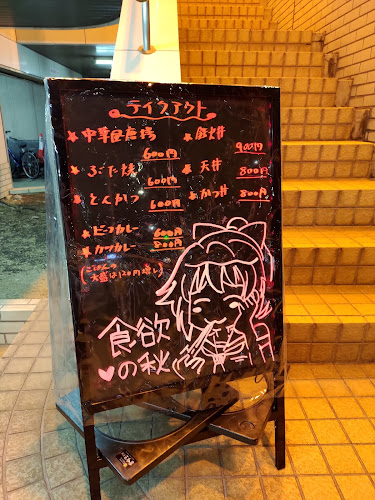 テイクアウト
中華風唐揚
600円
ぶた焼
600円
とんかつ
600円
ビーフカレー
600円
カツカレー
800円
(ごはんの
大盛は120円増し)
鉄火丼
900円
天丼
800円
かつ丼
800円
食欲
の秋